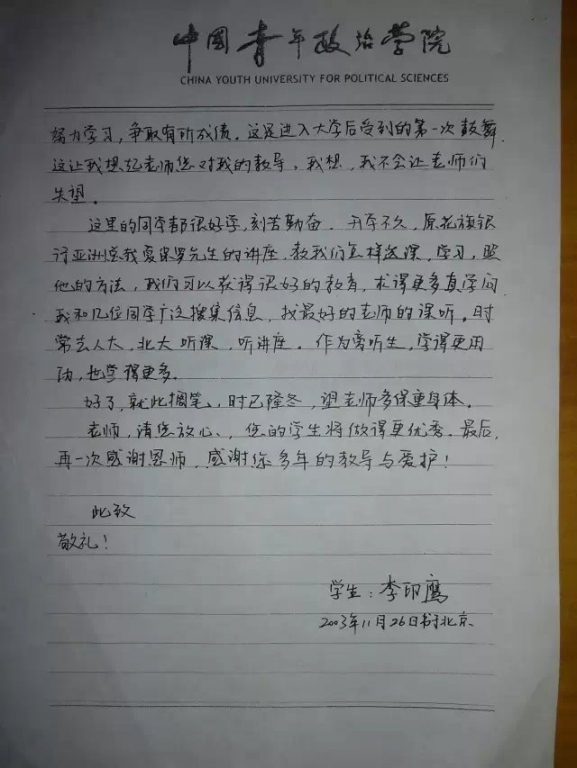 中国青年政治学院
CHINA YOUTH UNIVERSITY FOR POLITICAL SCIENCES
努力学习,争取有所成绩。这是进入大学后受到的第一次鼓舞
这让我想起老师您对我的教导,我想,我不会让老师们
失望。
这里的同学都很好学,刻苦勤奋。开学不久,原花旗银
行亚洲总裁夏保罗先生的讲座,教我们怎样选课,学习,照
他的方法,我们可以获得很好的教育,求得更多真学问
我和几位同学广泛搜集信息,找最好的老师的课听。时
常去人大,北大听课,听讲座。作为旁听生,学得更用
功,也学得更多。
好了,就此搁笔,时已隆冬,望老师多保重身体。
老师,请您放心、,您的学生将做得更优秀。最后,
再一次感谢恩师,感谢您多年的教导与爱护!
此致
敬礼!
学生:李印鹰
2003年11月26日书于北京.